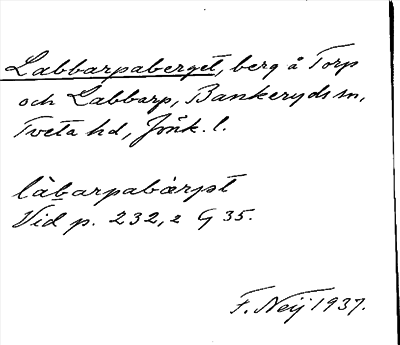 Labbarpaberget, berg å Torp
och Labbarp, Bankeryds sn,
Tveta hd, Jönk. l.
làbarpabærjət
Vid p. 232,2 G 35.
F. Neij 1937.